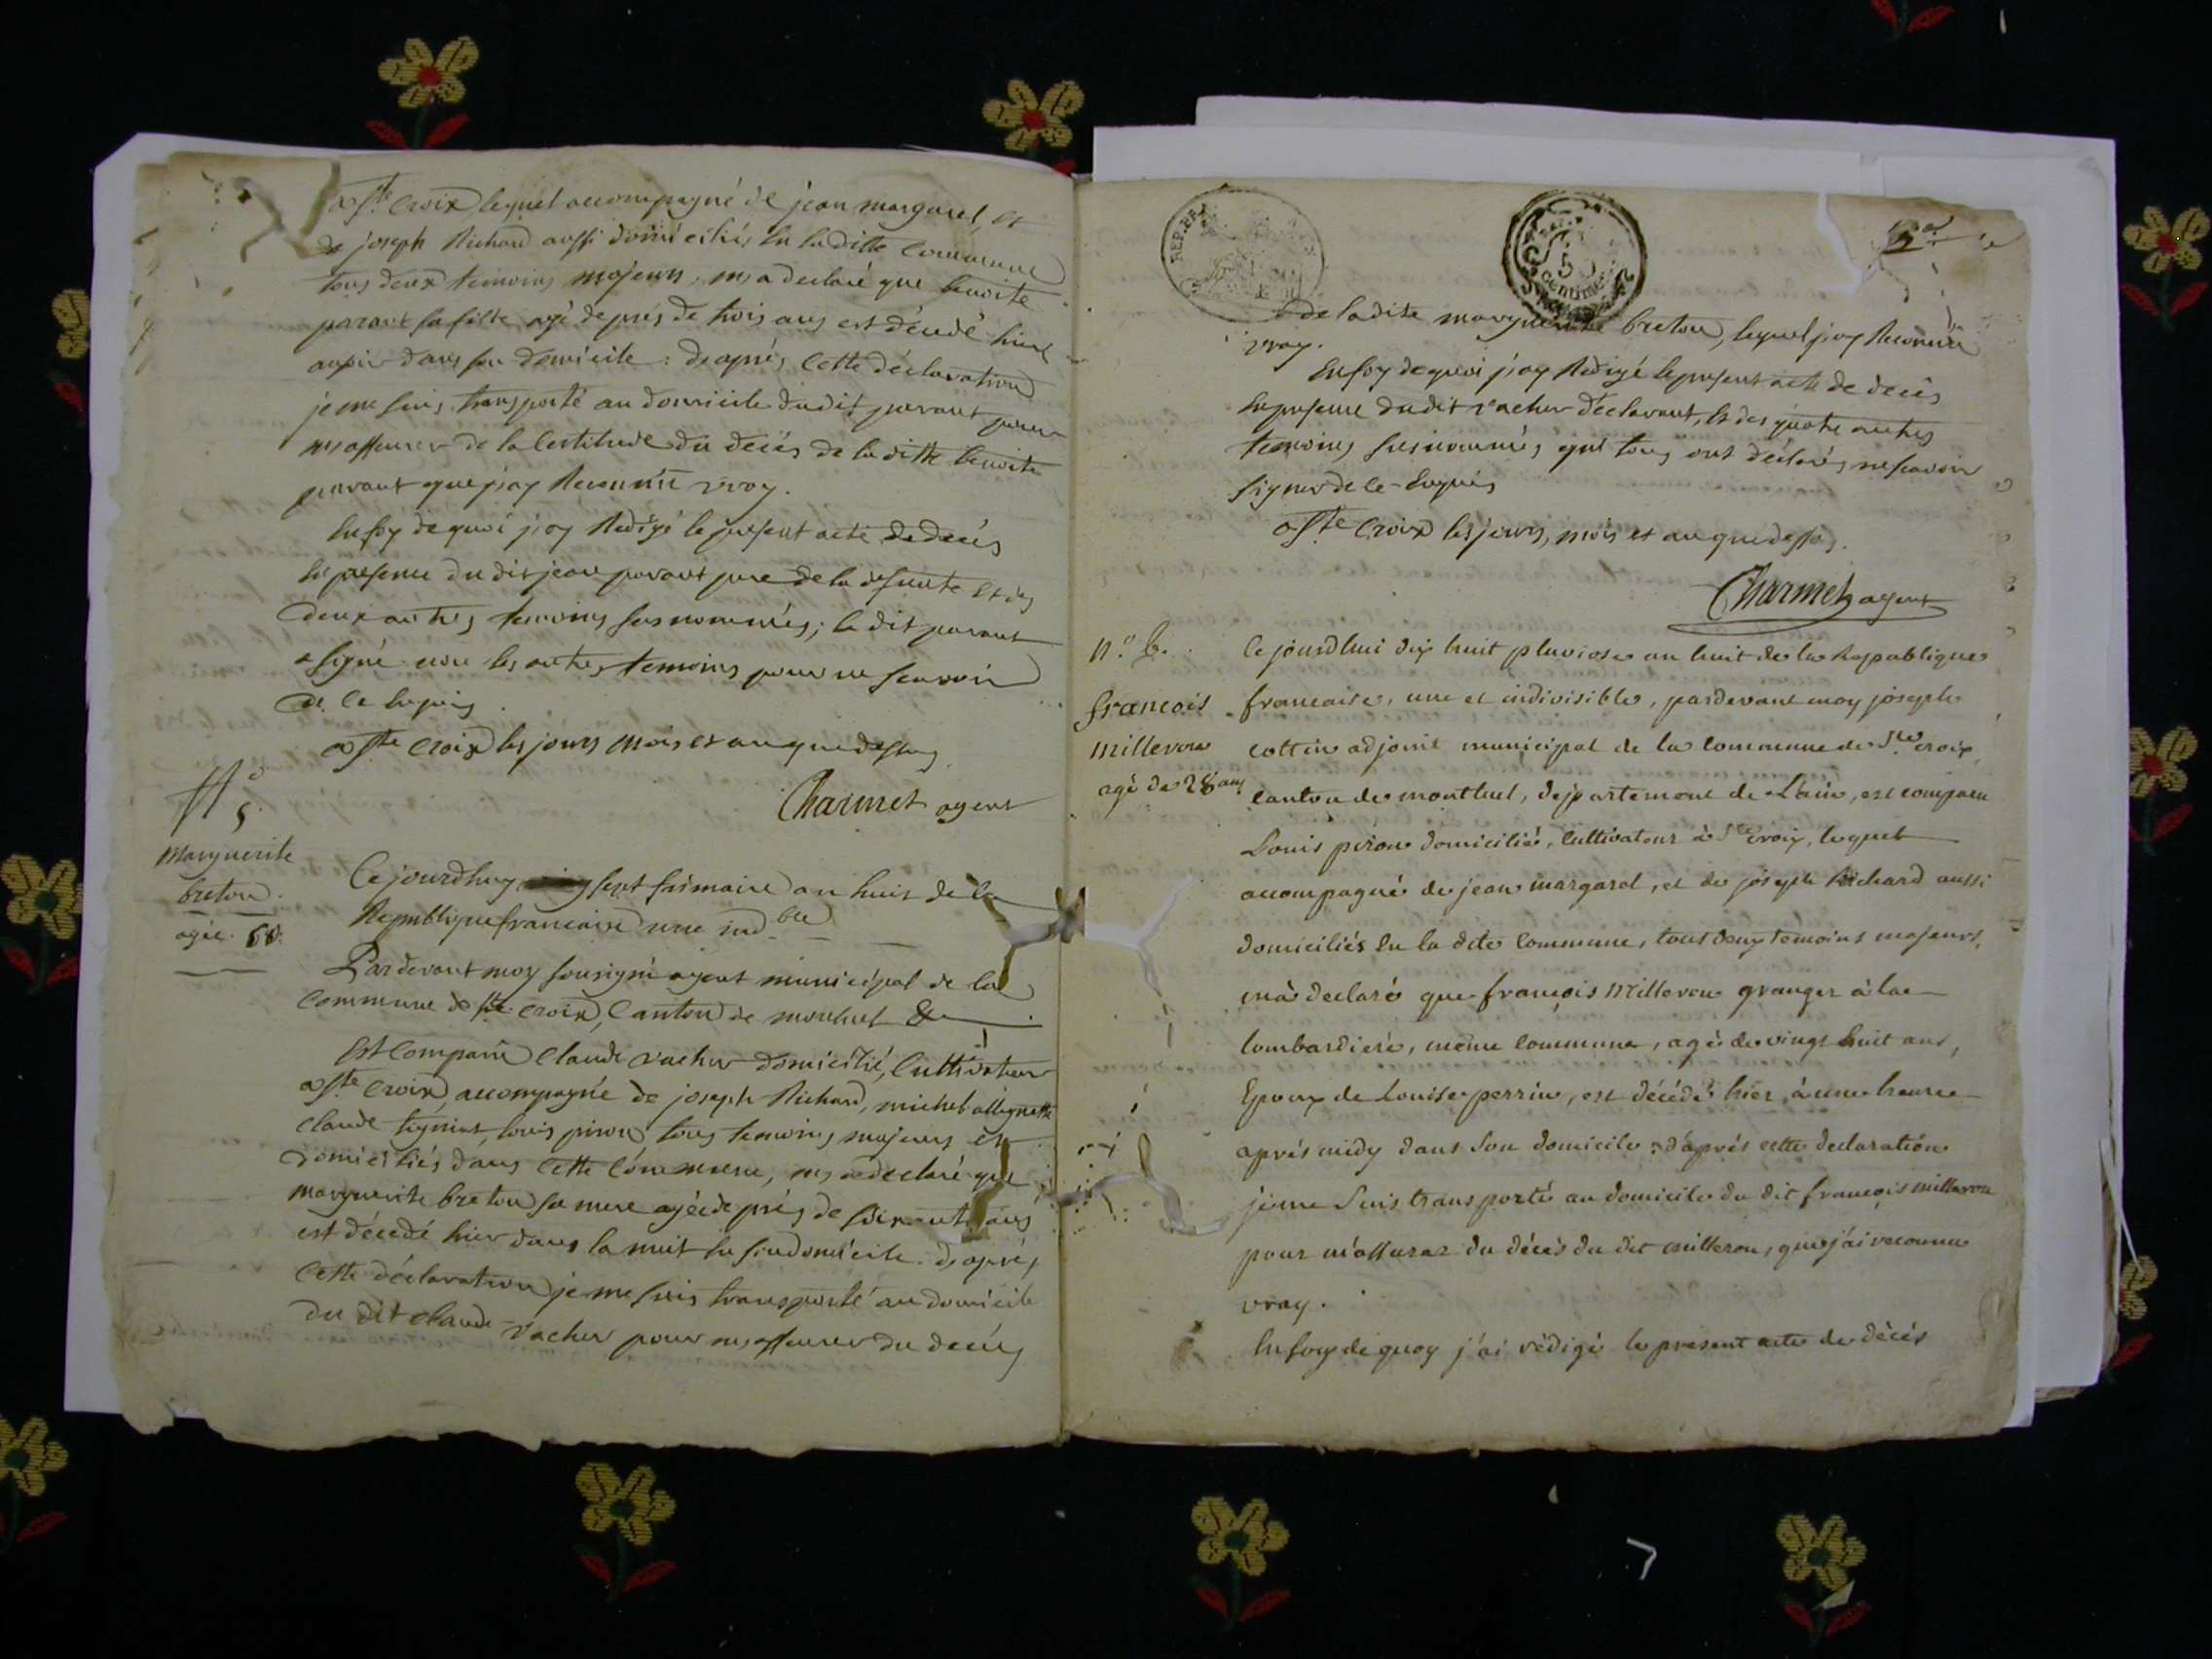 a Ste Croix, lequel accompagné de jean margarel, et
de joseph Richard aussi domiciliés en la ditte Commune
tous deux temoins majeurs, m'a declaré que benoite
parant sa fille agé de prés de trois ans est décédé hier
au soir dans son domicile: d'aprés cette déclaration
je me suis transporté au domicile dudit parant pour
m'assurer de la Certitude du decés de la ditte benoite
parant que j'ay Reconnu vray.
En foy de quoi j'ay Redigé le present acte de decés
en presence du dit jean parant pere de la defunte et des
deux autres temoins susnommés; le dit parant
a signé non les autres temoins pour ne scavoir
de ce enquis.
a Ste Croix les jours mois et an que dessus
Charmet agent
No 5.
Marguerite
breton.
agée. 60.
Ce jourd'huy sept frimaire an huit de la
Republique francaise une ind.ble
Pardevant moy sousigné agent municipal de la
Commune de Ste Croix, Canton de montluel &
Est Comparu Claude vacher domicilié, Cultivateur
a Ste Croix, accompagné de joseph Richard, michel
Claude louis piron tous temoins majeurs et
domiciliés dans Cette Commune, m'a declaré que
marguerite breton sa mere agée de prés de soixante ans
est décedé hier dans la nuit en son domicile. d'aprés
Cette déclaration je me suis transporté au domicile
du dit Claude vacher pour m'assurer du decés
REP. FRA
5
Centimes
de la dite marguerite breton, lequel j'ay Reconnu
vray.
En foy de quoi j'ay Redigé le present acte de decés
en presence dudit vacher déclarant, et des quatre autres
temoins susnommés qui tous ont déclarés ne scavoir
signer de ce Enquis
a Ste Croix les jours, mois et an que dessus.
Charmet agent
no. 6.
francois
millevon
agé de 28 ans
Ce jourd'hui dix huit pluviose an huit de la Republique
francaise, une et indivisible, pardevant moy joseph
cottin adjoint municipal de la commune de Ste croix,
canton de montluel, departement de L'ain, est comparu
Louis piron domicilié, cultivateur à Ste Croix, lequel
accompagné de jean margarel, et de joseph Richard aussi
domiciliés en la dite commune, tous deux temoins majeurs,
m'a declaré que françois Milleron granger à la
lombardiere, même commune, agé de vingt huit ans,
Epoux de Louise perrin, est décédé hier, à une heure
aprés midy dans son domicile: d'aprés cette declaration
je me suis transporté au domicile du dit françois milleron
pour m'assurer du décés du dit milleron, que j'ai reconnu
vray.
En foy de quoy j'ai rédigé le present acte de décés